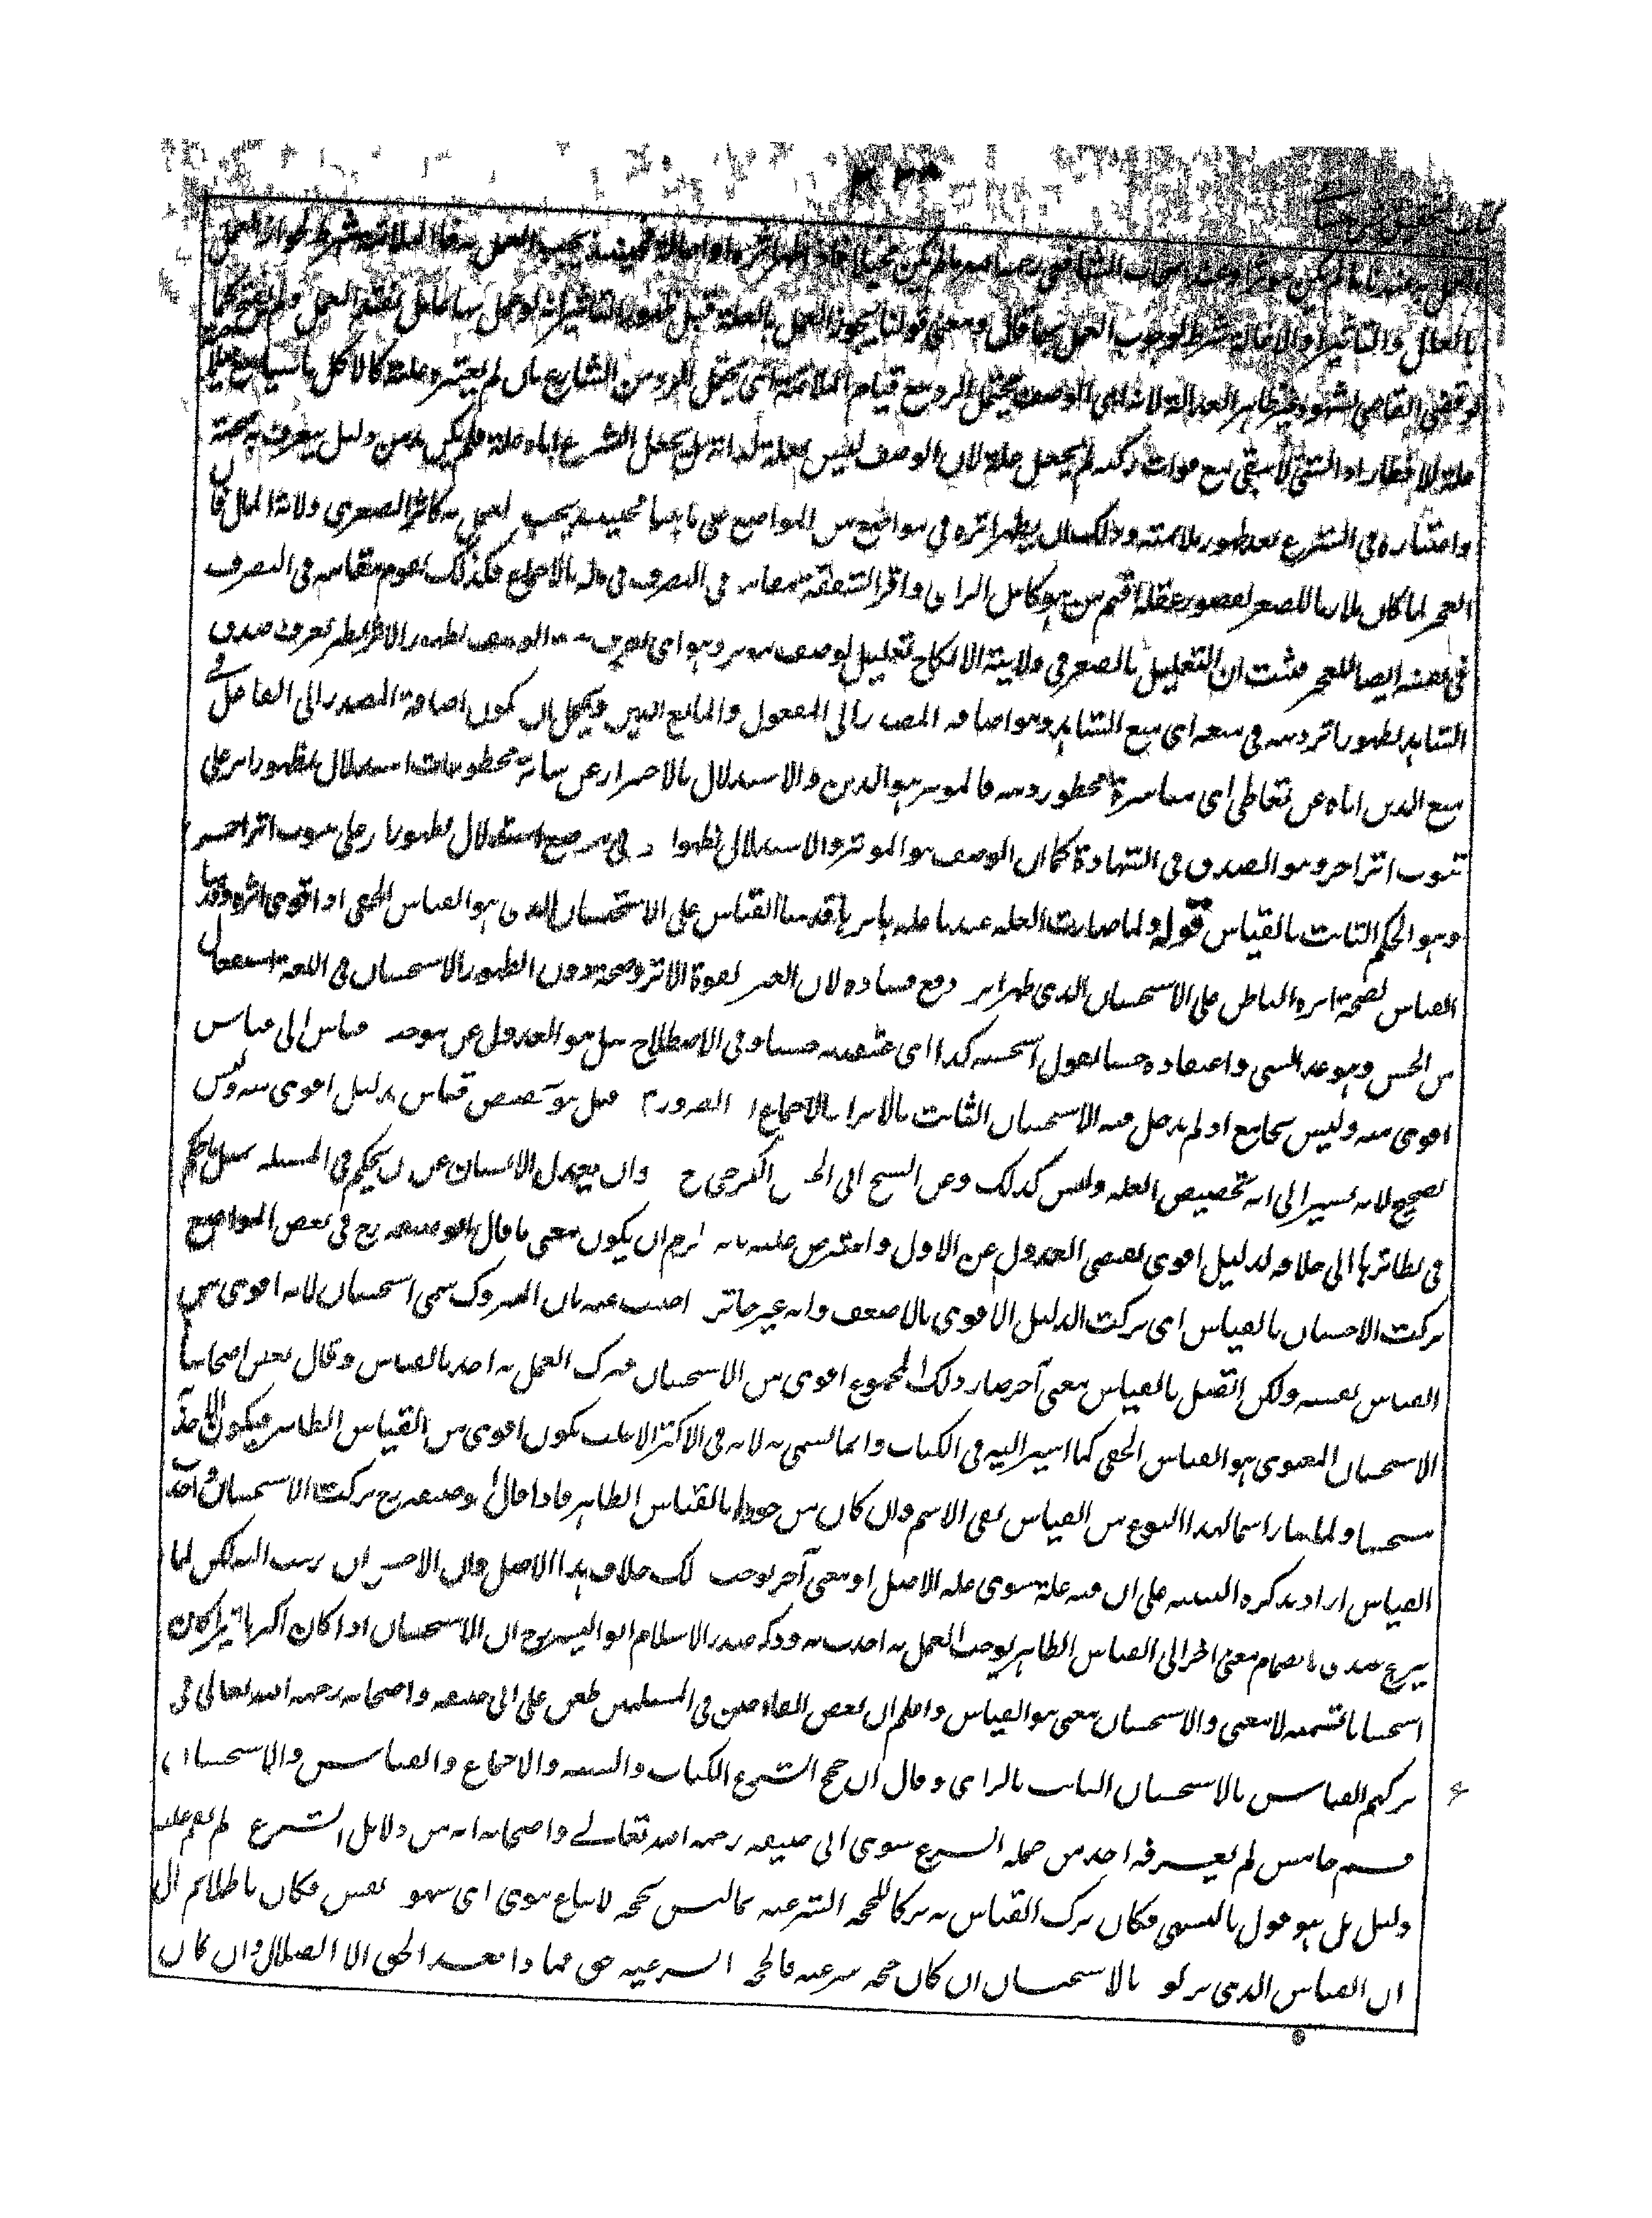 العمل به عندنا ما لم يكن مؤثرا وعند اصحاب الشافعى رح ما لم يكن مخيلا فاذا ظهر اثره او اخالة فحينئذ يجب العمل به فالملائمة شرط لجواز العمل
بالعلل والتاثير او الاخالة شرط لوجوب العمل بها قال ومعنى قولنا يجوز العمل بالعلة قبل ظهور التاثير انه لو عمل بها عامل نفذ العمل ولم يفسخ كما
لو قضى القاضى بشهود غير ظاهر العدالة لانه اى الوصف يحتمل الرد مع قيام الملائمة اى يحتمل الرد من الشارع بان لم يعتبره علة كالاكل ناسيا مع
علة للافطار اذ الشئ لا يبقى مع فوات ركنه لم يجعل علة لان الوصف ليس بعلة لذاته بل بجعل الشرع اياه علة فلم يكن بد من دليل يعرف به صحته
واعتباره فى الشرع بعد ظهور ملائمته وذلك بان يظهر اثره فى مواضع من المواضع فحينئذ يجب العمل به كاثر الصغر فى ولاية المال فان
العجز لما كان ملازما للصغر لقصور عقله اقيم من هو كامل الراى وافر الشفقة مقامه فى التصرف فى ماله بالاجماع فكذلك يقوم مقامه فى التصرف
فى نفسه ايضا للعجز فثبت ان التعليل بالصغر فى ولاية الانكاح تعليل بوصف مؤثر وهو اى الوصف بظهور الاثر نظير تعرف صدق
الشاهد بظهور اثر دينه فى منعه اى منع الشاهد وهو اضافة المصدر الى المفعول والمانع الدين ويحتمل ان يكون اضافة المصدر الى الفاعل فى
منع الدين اياه عن تعاطى اى مباشرة محظور دينه فالموثر هو الدين والاستدلال بالاحتراز عن سائر محظورات استدلال بظهور اثر على
ثبوت اثر اخر وهو الصدق فى الشهادة كما ان الوصف هو الموثر والاستدلال بظهور اثره فى موضع استدلال بظهور اثر على ثبوت اثر اخر
وهو الحكم الثابت بالقياس قوله ولما صارت العلة عندنا علة باثرها قدمنا القياس على الاستحسان الذى هو القياس الخفى اذا قوى اثره وقدمنا
القياس لصحة اثره الباطن على الاستحسان الذى ظهر اثره وخفى فساده لان العبرة لقوة الاثر وصحته دون الظهور الاستحسان فى اللغة استفعال
من الحسن وهو عد الشئ واعتقاده حسنا يقول استحسنه كذا اى اعتقدته حسنا وفى الاصطلاح قيل هو العدول عن موجب قياس الى قياس
اقوى منه وليس بجامع اذ لم يدخل فيه الاستحسان الثابت بالاثر او بالاجماع او الضرورة وقيل هو تخصيص قياس بدليل اقوى منه وليس
بصحيح لانه يشير الى انه تخصيص العلة وليس كذلك وعن الشيخ ابى الحسن الكرخى رح هو ان يعدل الانسان عن ان يحكم فى المسئلة بمثل ما حكم
فى نظائرها الى خلافه لدليل اقوى يقتضى العدول عن الاول واعترض عليه بانه يلزم ان يكون معنى ما قال ابو حنيفة رح فى بعض المواضع
تركت الاحسان بالقياس اى تركت الدليل الاقوى بالاضعف وانه غير جائز اجيب عنه بان المتروك سمى استحسان لانه اقوى من
القياس نفسه ولكن اتصل بالقياس معنى آخر صار ذلك المجموع اقوى من الاستحسان فترك العمل به اخذ بالقياس وقال بعض اصحابنا
الاستحسان المعنوى هو القياس الخفى كما اشير اليه فى الكتاب وانما سمى به لانه فى الاكثر الاغلب يكون اقوى من القياس الظاهر فيكون الاخذ
مستحسنا ولما صار اسما لهذا النوع من القياس بقى الاسم وان كان من جوز بالقياس الظاهر فاذا قال ابو حنيفة رح تركت الاستحسان واخذت
القياس اراد بذكره التنبيه على ان فيه علة سوى علة الاصل او معنى آخر يوجب ذلك خلاف هذا الاصل وان الاحسن ان يذهب اليه لكن لما
ترجح عندى بانضمام معنى اخر الى القياس الظاهر يوجب العمل به اخذت به وذكر صدر الاسلام ابو اليسر رح ان الاستحسان اذا كان اكبر تاثيرا كان
استحسانا تسمية لا معنى والاستحسان معنى هو القياس واعلم ان بعض القادحين فى المسلمين طعن على ابى حنيفة واصحابه رحمه الله تعالى فى
تركهم القياس بالاستحسان الثابت بالراى وقال ان حجج الشرع الكتاب والسنة والاجماع والقياس والاستحسان
قسم خامس لم يعرفه احد من حملة الشرع سوى ابى حنيفة رحمه الله تعالى واصحابه انه من دلائل الشرع لم يقم عليه
دليل بل هو قول بالتشهى فكان ترك القياس به تركا للحجة الشرعية بما ليس بحجة لاتباع هوى او شهوة نفس فكان باطلا ثم قال
ان القياس الذى تركوه بالاستحسان ان كان حجة شرعية فالحجة الشرعية حق فماذا بعد الحق الا الضلال وان كان